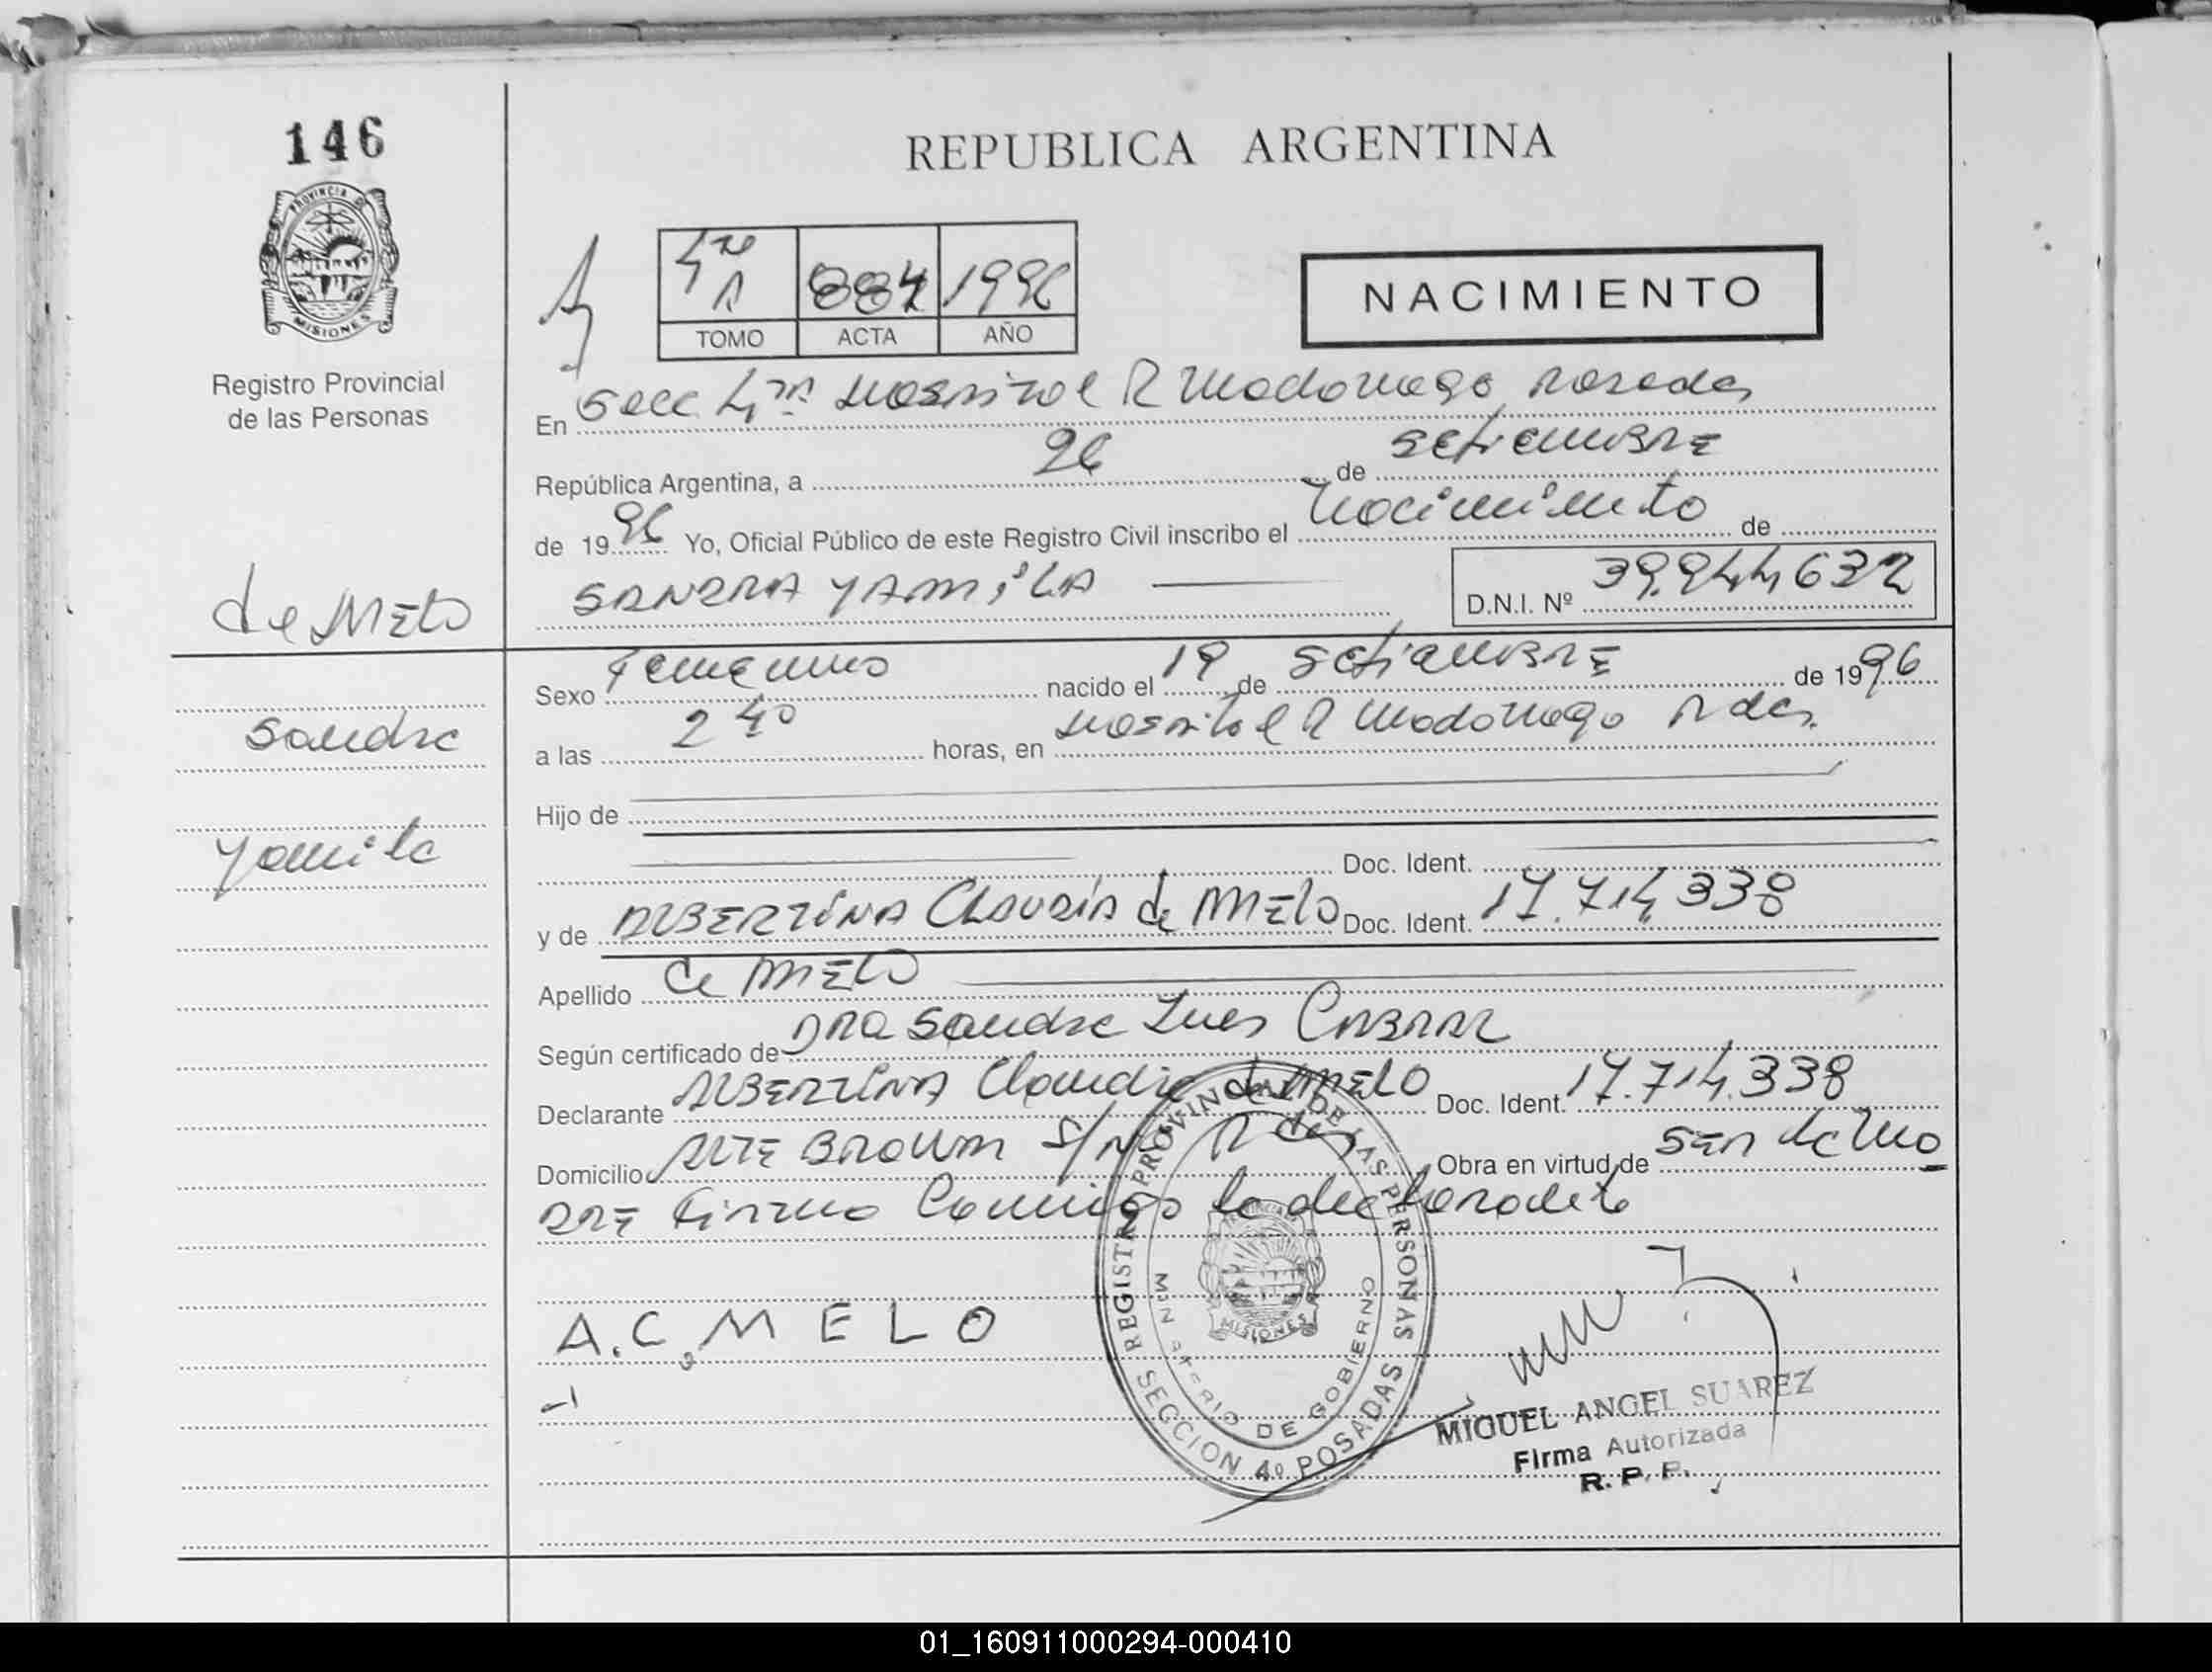 146
REPUBLICA ARGENTINA
PROVINCIA DE
MISIONES
Registro Provincial
de las Personas
4ta 884 1996
TOMO ACTA AÑO
NACIMIENTO
En Secc 4ta Hospital R Madariaga Posadas
República Argentina, a 26 de Setiembre
de 1996 Yo, Oficial Público de este Registro Civil inscribo el Nacimiento de
SANDRA YAMILA
D.N.I. Nº 39.944.632
de MELO
Sandra
Yamila
Sexo Femenino nacido el 19 de Setiembre de 1996
a las 2 40 horas, en Hospital R Madariaga Pdas.
Hijo de
Doc. Ident.
y de ALBERTINA CLAUDIA de MELO Doc. Ident. 17.714.338
Apellido de MELO
Según certificado de DRA Sandra Ines CABRAL
Declarante ALBERTINA Claudia de MELO Doc. Ident. 17.714.338
Domicilio ALTE BROWN S/Nº Pdas Obra en virtud de SER la MA
DRE Firma Conmigo la declarante
A.C. MELO
REGISTRO PROVINCIAL DE LAS PERSONAS
MINISTERIO DE GOBIERNO
PROVINCIA DE
MISIONES
SECCION 4º POSADAS
MIGUEL ANGEL SUAREZ
Firma Autorizada
R. P. P.
01_160911000294-000410